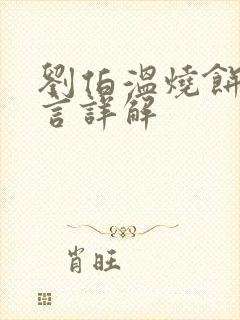 劉伯溫燒餅
言詳解
肖旺